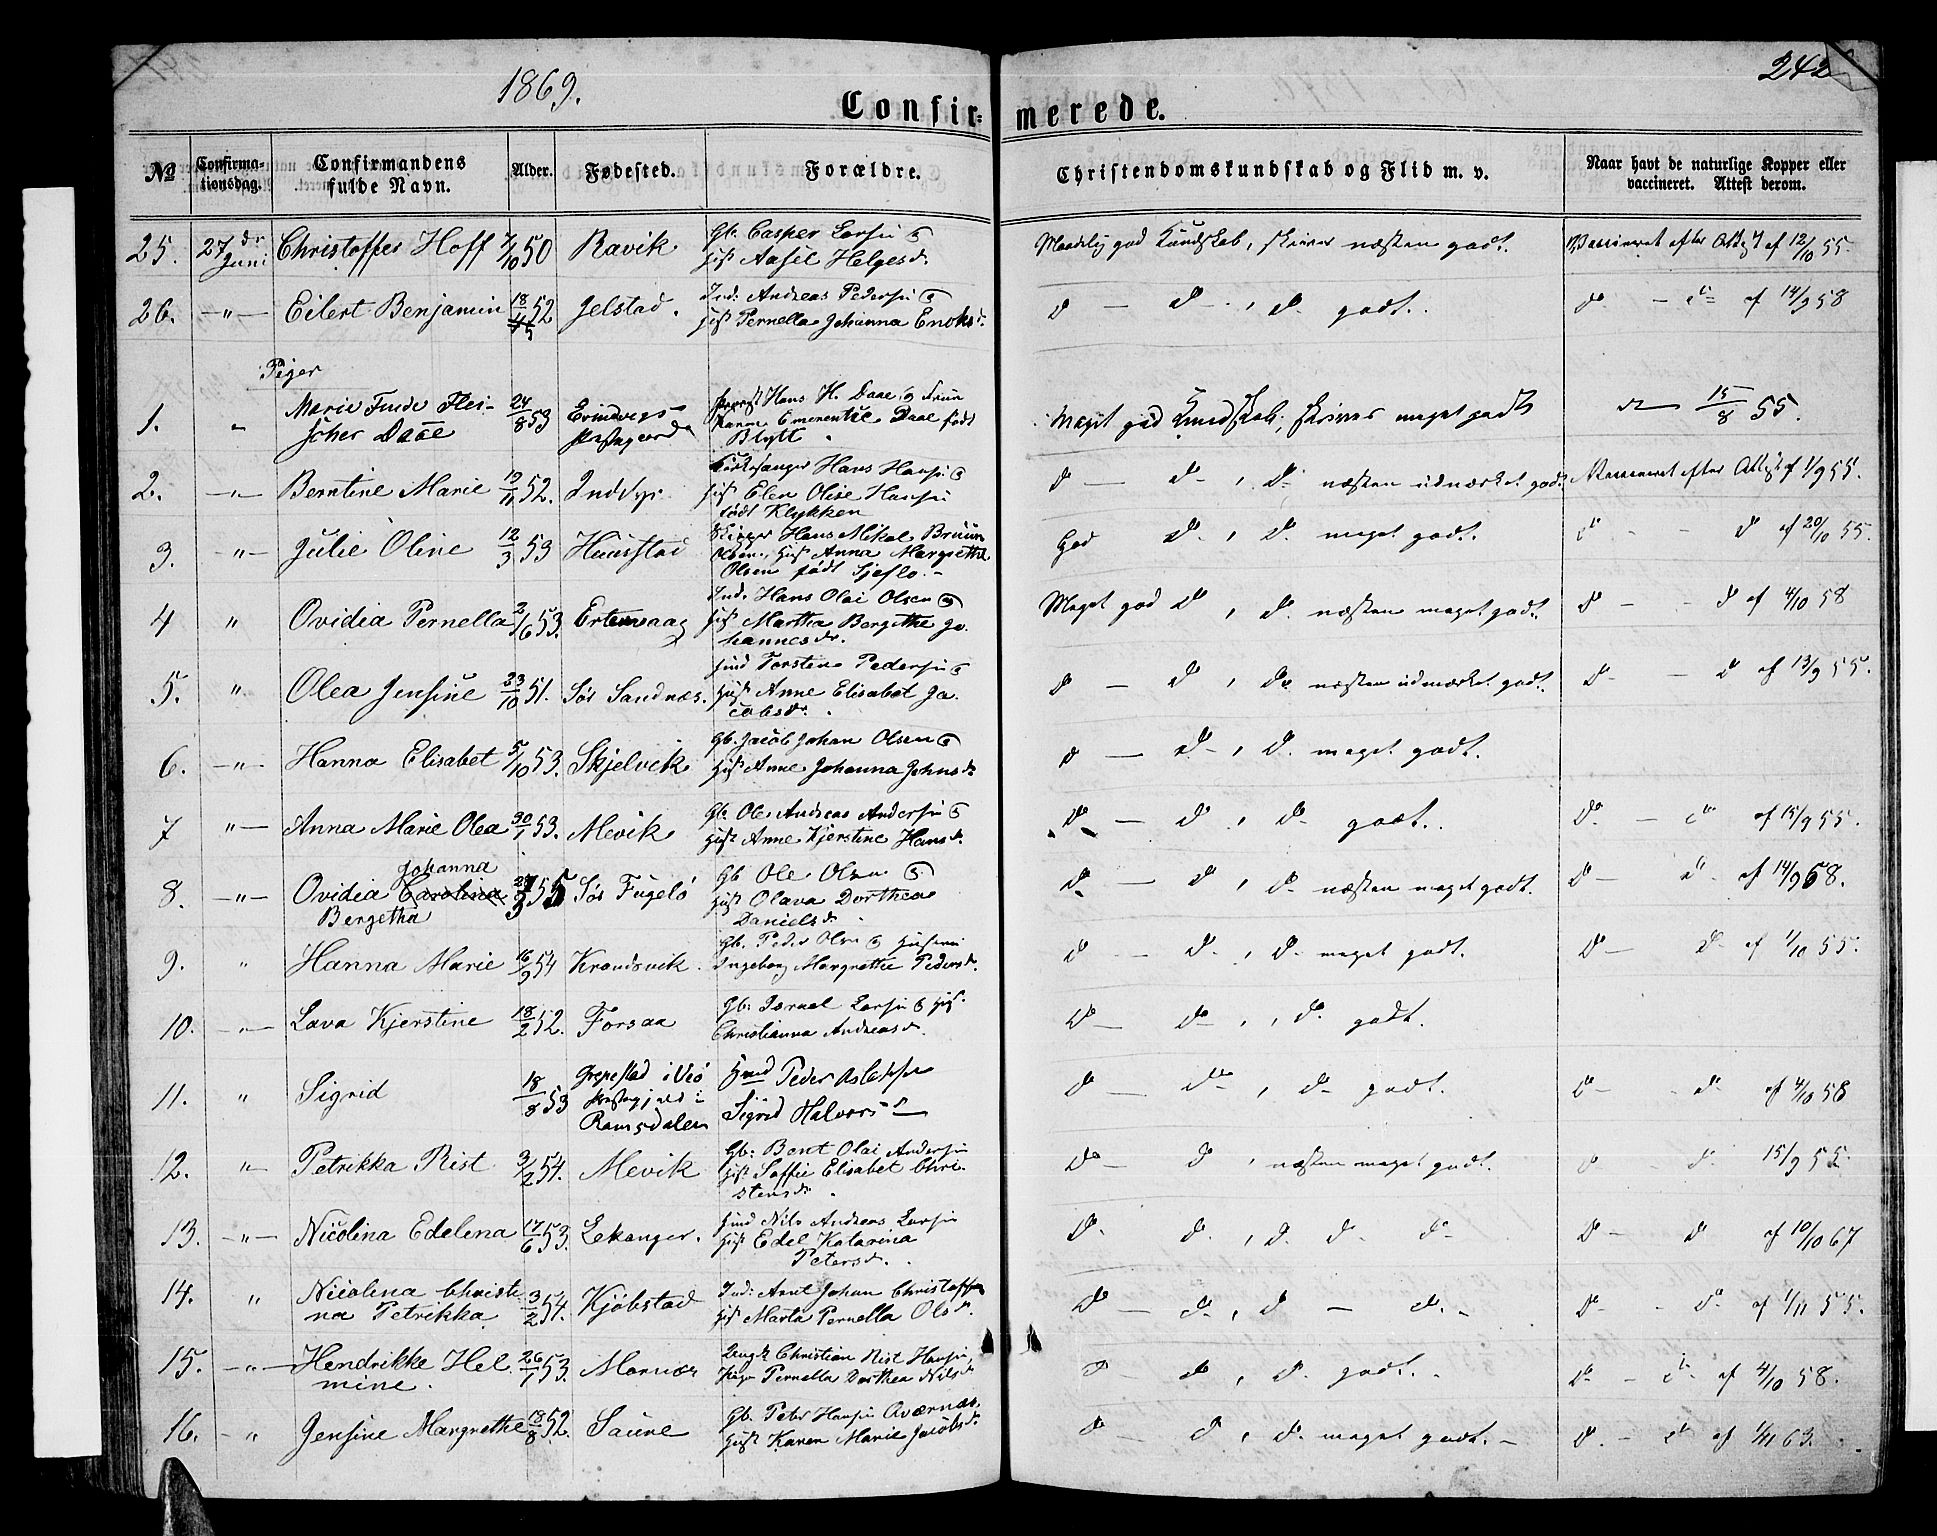 1869.
242
Confir= merede.
No Confirmationsdag. Confirmandens fulde Navn. Alder. Fødested. Forældre. Christendomskundskab og Flid m. v. Naar havt de naturlige Kopper eller vaccineret. Attest derom.
25. 27de Juni Christoffer Hoff 7/10 50 Ravik Gb. Casper Larsen & Hust Aasel Helgesdr. Maadelig god Kundskab, skriver næsten godt. Vaccineret efter Attest af 12/10 55.
26. —"— Eilert Benjamin 18/4 52 Jelstad. Ind. Andreas Pedersen & Hust Pernella Johanna Enoksdr. do — do, do godt. do — do af 14/9 58
Piger
1. " Marie Frude Fleischer Daae 24/8 53 Evindvigs Præstegaard Provst Hans H. Daae & Frue Emerentie Daae født Blytt Meget god Kundskab, skriver meget godt do 15/8 55.
2. —"— Berntine Marie 19/11 52. Indyr Kirkesanger Hans Hansen & Hust Elen Olise Hansen født Klykken do — do, do næsten udmærket godt. Vaccineret efter Attest af 1/9 55.
3. —"— Julie Oline 12/3 53 Huusstad Hans Mikal Bruun Olsen, Hust Anna Margrethe Olsen født Sjeflo. God do, do meget godt. do - do af 20/10 55.
4 " Ovidia Pernella 2/6 53. Ertenvaag Ind. Hans Olai Olsen & Hust Martha Bergitha Johannesdr. Meget god do, do næsten meget godt. do - do af 4/10 58
5. " Olea Jensine 23/10 51. Sør Sandnæs. Ind Torsten Pedersen & Hust Anne Elisabet Jacobsdr. do — do, do næsten udmærket godt. do - do af 13/9 55.
6. —"— Hanna Elisabet 5/10 53. Skjelvik Gb. Jacob Johan Olsen & Hust Anne Johanna Johnsdr do — do, do meget godt.
7 "— Anna Marie Olea 30/1 53. Mevik Gb. Ole Andreas Andersen & Hust Anne Kjerstine Hansdr. do — do, do godt. do — do af 15/9 55.
8. —"— Ovidia Carolina Johanna Bergetha 55 Sør Fugelø Gb Ole Olsen & Hust Olava Dorthea Danielsdr. do — do, do næsten meget godt. do — do af 14/9 68.
9. " Hanna Marie 16/9 54 Krandsvik Gb. Peder Olsen & Hustru Ingeborg Margrethe Pedersdr. do — do, do meget godt. do — do af 1/10 55.
10. —"— Lava Kjerstine 18/2 52. Forsaa Gb. Israel Larsen & Hust. Christianna Andreasdr. do — do, do godt.
11. " Sigrid 18/8 53 Grepestad i Veø Præstegjeld i Ramsdalen Ind Peder Aslaksen Sigrid Halvorsdr do — do, do godt. do — do af 4/10 58
12. "— Petrikka Rist 3/2 54. Mevik Gb. Bent Olai Andersen Hust Soffie Elisabet Christensdr. do — do, næsten meget godt. do - do. 15/9 55.
13. —"— Nicolina Edelena 17/6 53. Lekanger. Ind Nils Andreas Larsen Hust Edel Katarina Petersdr. do. do, do do do do — do af 10/10 67
14. " Nicolina Christina Petrikka 3/2 54. Kjøbstad Ind. Arnt Johan Christoffersen Hust Marta Pernella Olsdr. do — do, do — do. do — do af 1/11 55.
15. —"— Hendrikke Helmine. 26/1 53. Marnæs Ungk. Christian Rist Hansen, Pige Pernella Dorthea Nilsdr do — do, do godt. do — do af 4/10 58.
16. - " Jensine Margrethe 18/8 52. Saure Gb. Peter Hansen Aværnæs. Hust Karen Marie Jacobsdr do — do, do meget godt. do. — do af 1/11 63.